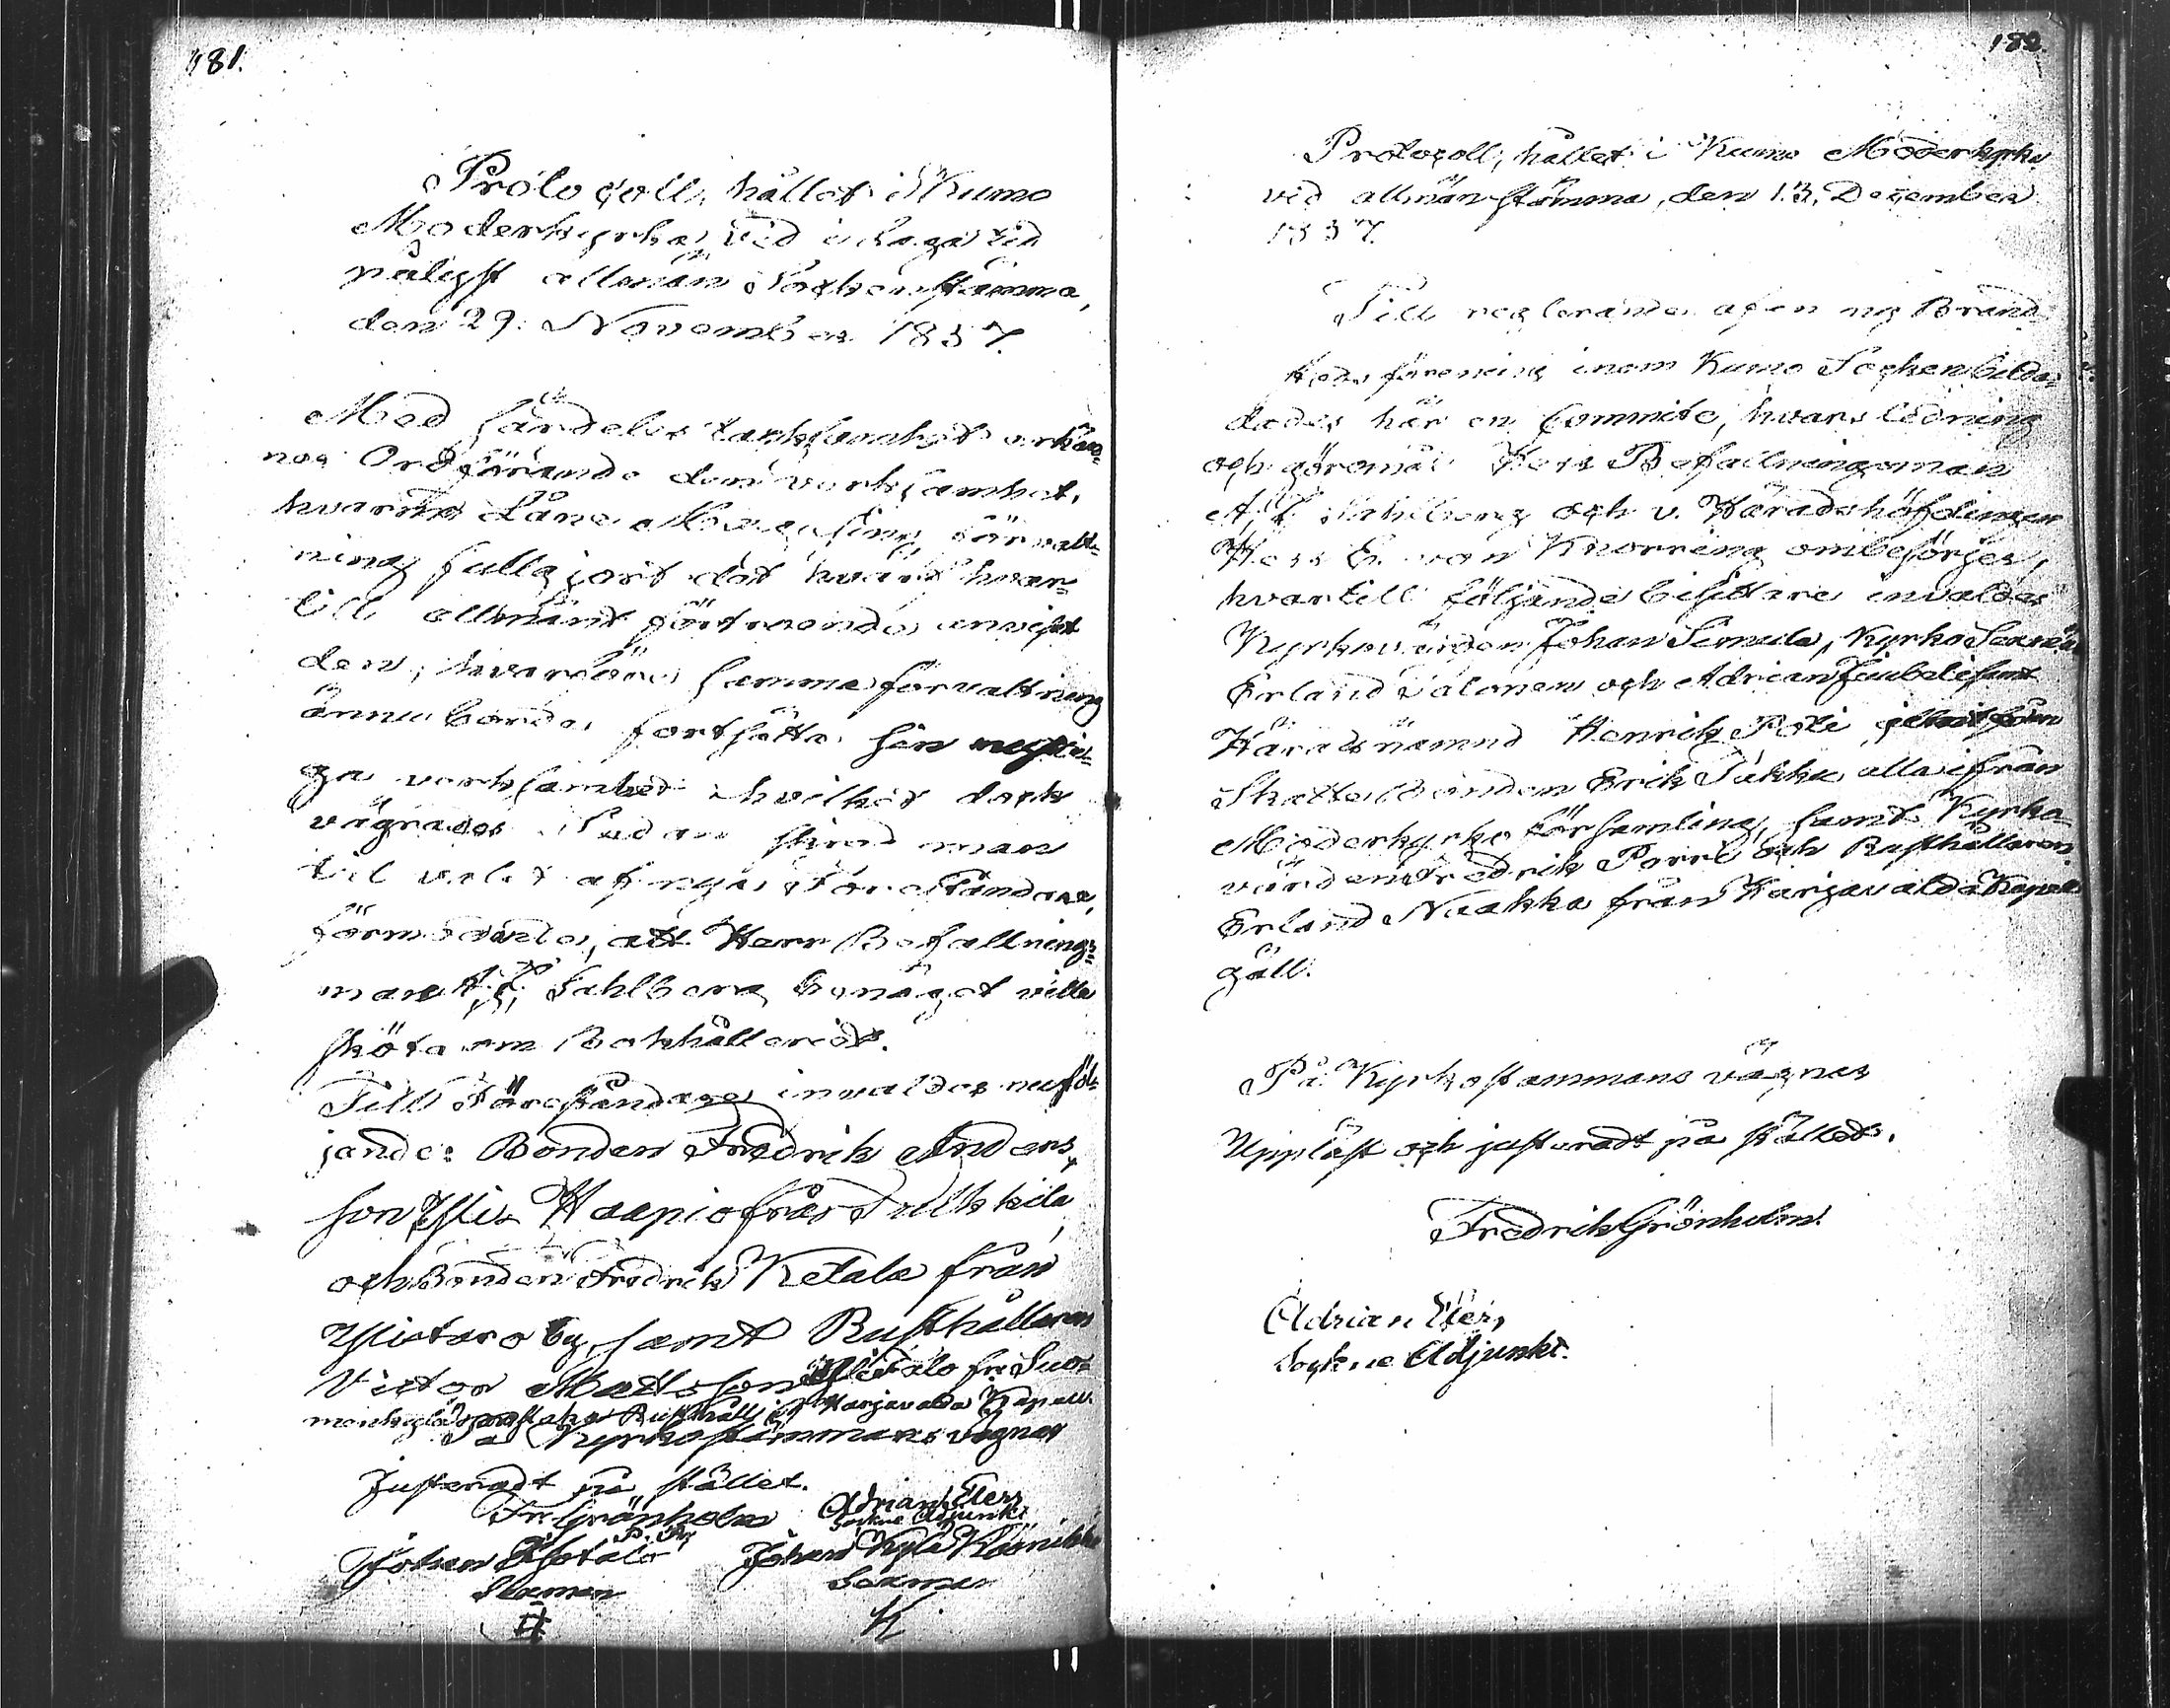 181.
Protocoll, hållet i Kumo
Moderkyrka, vid i laga tid
pålyst allmän Sockenstämma,
den 29. November 1837.
Med särdeles tacksamhet erkän-
nes Ordförande den verksamhet,
hvarmed Låne Magasins förvalt-
ning fullgjort det hvartill hvar-
till allmänt förtroende anvist
den, hvarföre samma förvaltning
ännu borde fortsätta sin
ga verksamhet hvilket dock
vägrades. Sedan skred man
til valet af nya Föreståndare,
förmodande, att Herr Befallnings-
man A. L. Sahlberg benäget ville
sköta om Bokhålleriet.
Till Föreståndare invaldes nuföl-
jande: Bonden Fredrik Anders-
son Yli Haapio från Tulkkila
och Bonden Fredrik Ketala från
Ylistaro by, samt Rusthållaren
Victor Mattsson Ylitalo fr. Suo-
menkylä Rusthåll i Harjavalda Kapell.
På Kyrkostämmans vägnar
Justeradt på stället.
Fr. Grönholm
P. Pr.
Adrian Elers
Sockne Adjunkt
Johan Isotalo
Sexman
Johan Kylä Köönikkä
Sexman
K
182.
Protocoll, hållet i Kumo Moderkyrka
vid allmän stämma, den 13. December
1837.
Till reglerande af en ny Brand-
stods förening inom Kumo Socken bilda-
dades här en Committe, hvars ledning
och göromål Herr Befallningsman
A. L. Sahlberg och v. Häradshöfdingen
Herr G. von Knorring ombesörjer,
hvartill följande bisittare invaldes
Kyrkovärden Johan Simula, Kyrko Sexmän
Erland Talonen och Adrian Juubeli samt
Häradsnämnd Henrik Poti
Skatte Bonden Erik Takku alla ifrån
Moderkyrko församling, samt Kyrko-
värden Fredrik Porri och Rusthållaren
Erland Naakka från Harjavalda Kapell
gäll.
På Kyrkostämmans vägnar
Uppläst och justeradt på stället.
Fredrik Grönholm.
Adrian Elers
Sockne Adjunkt.